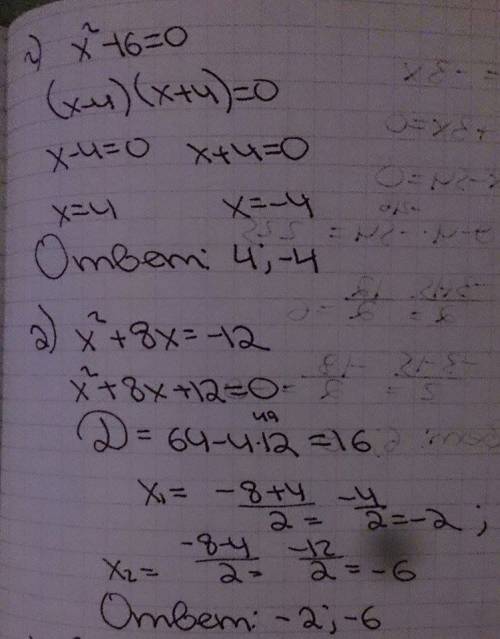 1) x²-16=0
(x-4)(x+4)=0
x-4=0 x+4=0
x=4 x=-4
Ответ: 4; -4
2) x²+8x=-12
x²+8x+12=0
D = 64-4·12 =16
48
x₁= -8+4/2 = -4/2 =-2 ;
x₂= -8-4/2 = -12/2 =-6
Ответ: -2; -6